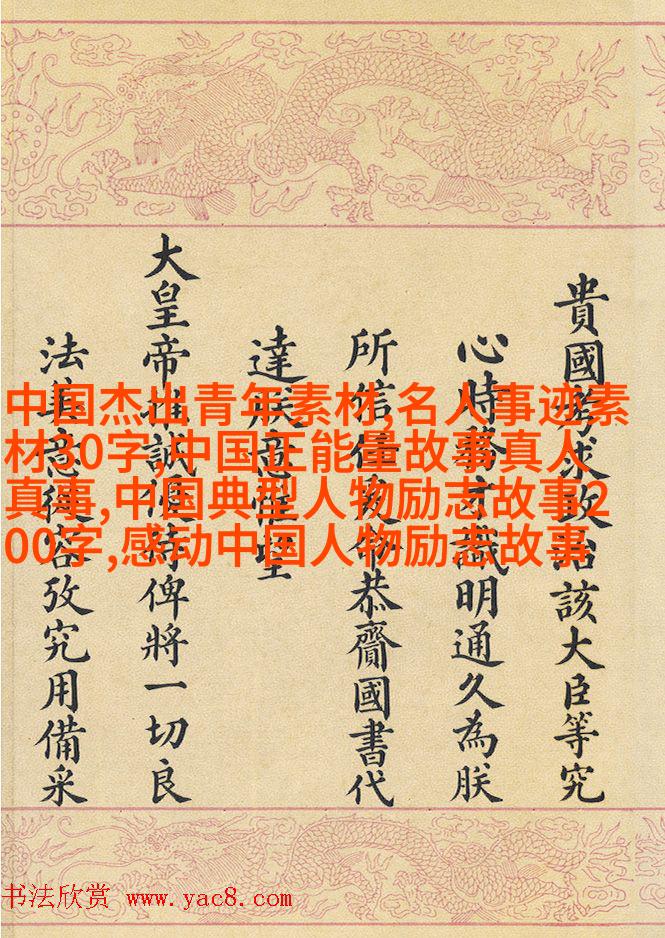 中国杰出青年素材,名人事迹素
材30字,中国正能量故事真人
真事,中国典型人物励志故事2
00字,感动中国人物励志故事
貴國求政治該大臣等究
心時務才識明通久為朕
所信恭齎國書代
達朕意惟望
大皇帝推誠俾將一切良
法美意從容攷究用備采
书法欣赏 www.yac8.com